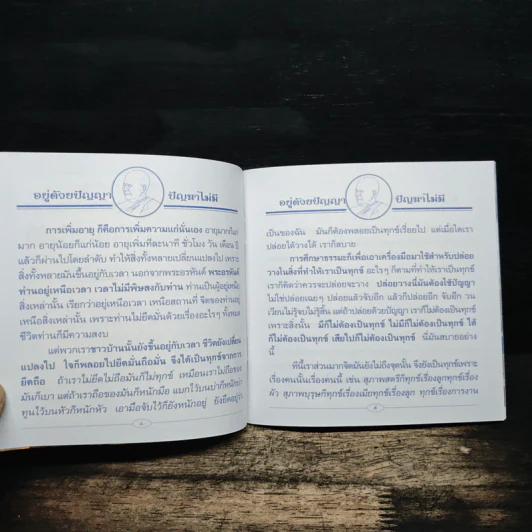 อยู่ด้วยปัญญา ปัญหาไม่มี
การเพิ่มอายุ ก็คือการเพิ่มความแก่นั่นเอง อายุมากก็แก่
มาก อายุน้อยก็แก่น้อย อายุเพิ่มทีละนาที ชั่วโมง วัน เดือน ปี
แล้วก็ผ่านไปโดยลำดับ ทำให้สิ่งทั้งหลายเปลี่ยนแปลงไป เพราะ
สิ่งทั้งหลายมันขึ้นอยู่กับเวลา นอกจากพระอรหันต์ พระอรหันต์
ท่านอยู่เหนือเวลา เวลาไม่มีพิษสงกับท่าน ท่านเป็นผู้อยู่เหนือ
สิ่งเหล่านั้น เรียกว่าอยู่เหนือเวลา เหนือสถานที่ จิตของท่านอยู่
เหนือสิ่งเหล่านั้น เพราะท่านไม่ยึดมั่นด้วยเรื่องอะไรๆ ทั้งหมด
ชีวิตท่านก็มีความสงบ
แต่พวกเราชาวบ้านนั้นยังขึ้นอยู่กับเวลา ชีวิตยังเปลี่ยน
แปลงไป ใจก็พลอยไปยึดมั่นถือมั่น จึงได้เป็นทุกข์จากการ
ยึดถือ ถ้าเราไม่ยึดไม่ถือมันก็ไม่ทุกข์ เหมือนเราไม่ถือของ
มันก็เบา แต่ถ้าเราถือของมันก็หนักมือ แบกไว้บนบ่าก็หนักบ่า
ทูนไว้บนหัวก็หนักหัว เอามือจับไว้ก็ยังหนักอยู่ ยังยึดอยู่ว่า
๔
อยู่ด้วยปัญญา ปัญหาไม่มี
เป็นของฉัน มันก็ต้องพลอยเป็นทุกข์เรื่อยไป แต่เมื่อใดเรา
ปล่อยได้วางได้ เราก็สบาย
การศึกษาธรรมะก็เพื่อเอาเครื่องมือมาใช้สำหรับปล่อย
วางในสิ่งที่ทำให้เราเป็นทุกข์ อะไรๆ ก็ตามที่ทำให้เราเป็นทุกข์
เราก็คิดว่าควรจะปล่อยจะวาง ปล่อยวางนี่มันต้องใช้ปัญญา
ไม่ใช่ปล่อยเฉยๆ ปล่อยแล้วจับอีก แล้วก็ปล่อยอีก จับอีก วน
เวียนไม่รู้จบไม่รู้สิ้น แต่ถ้าปล่อยด้วยปัญญา เราก็ไม่ต้องเป็นทุกข์
เพราะสิ่งนั้น มีก็ไม่ต้องเป็นทุกข์ ไม่มีก็ไม่ต้องเป็นทุกข์ ได้
ก็ไม่ต้องเป็นทุกข์ เสียไปก็ไม่ต้องเป็นทุกข์ นี่มันสบายอย่าง
นี้
ทีนี้เราส่วนมากจิตมันยังไม่ถึงจุดนั้น จึงยังเป็นทุกข์เพราะ
เรื่องคนนั้นเรื่องคนนี้ เช่น สุภาพสตรีก็ทุกข์เรื่องลูกทุกข์เรื่อง
ผัว สุภาพบุรุษก็ทุกข์เรื่องเมียทุกข์เรื่องลูก ทุกข์เรื่องการงาน